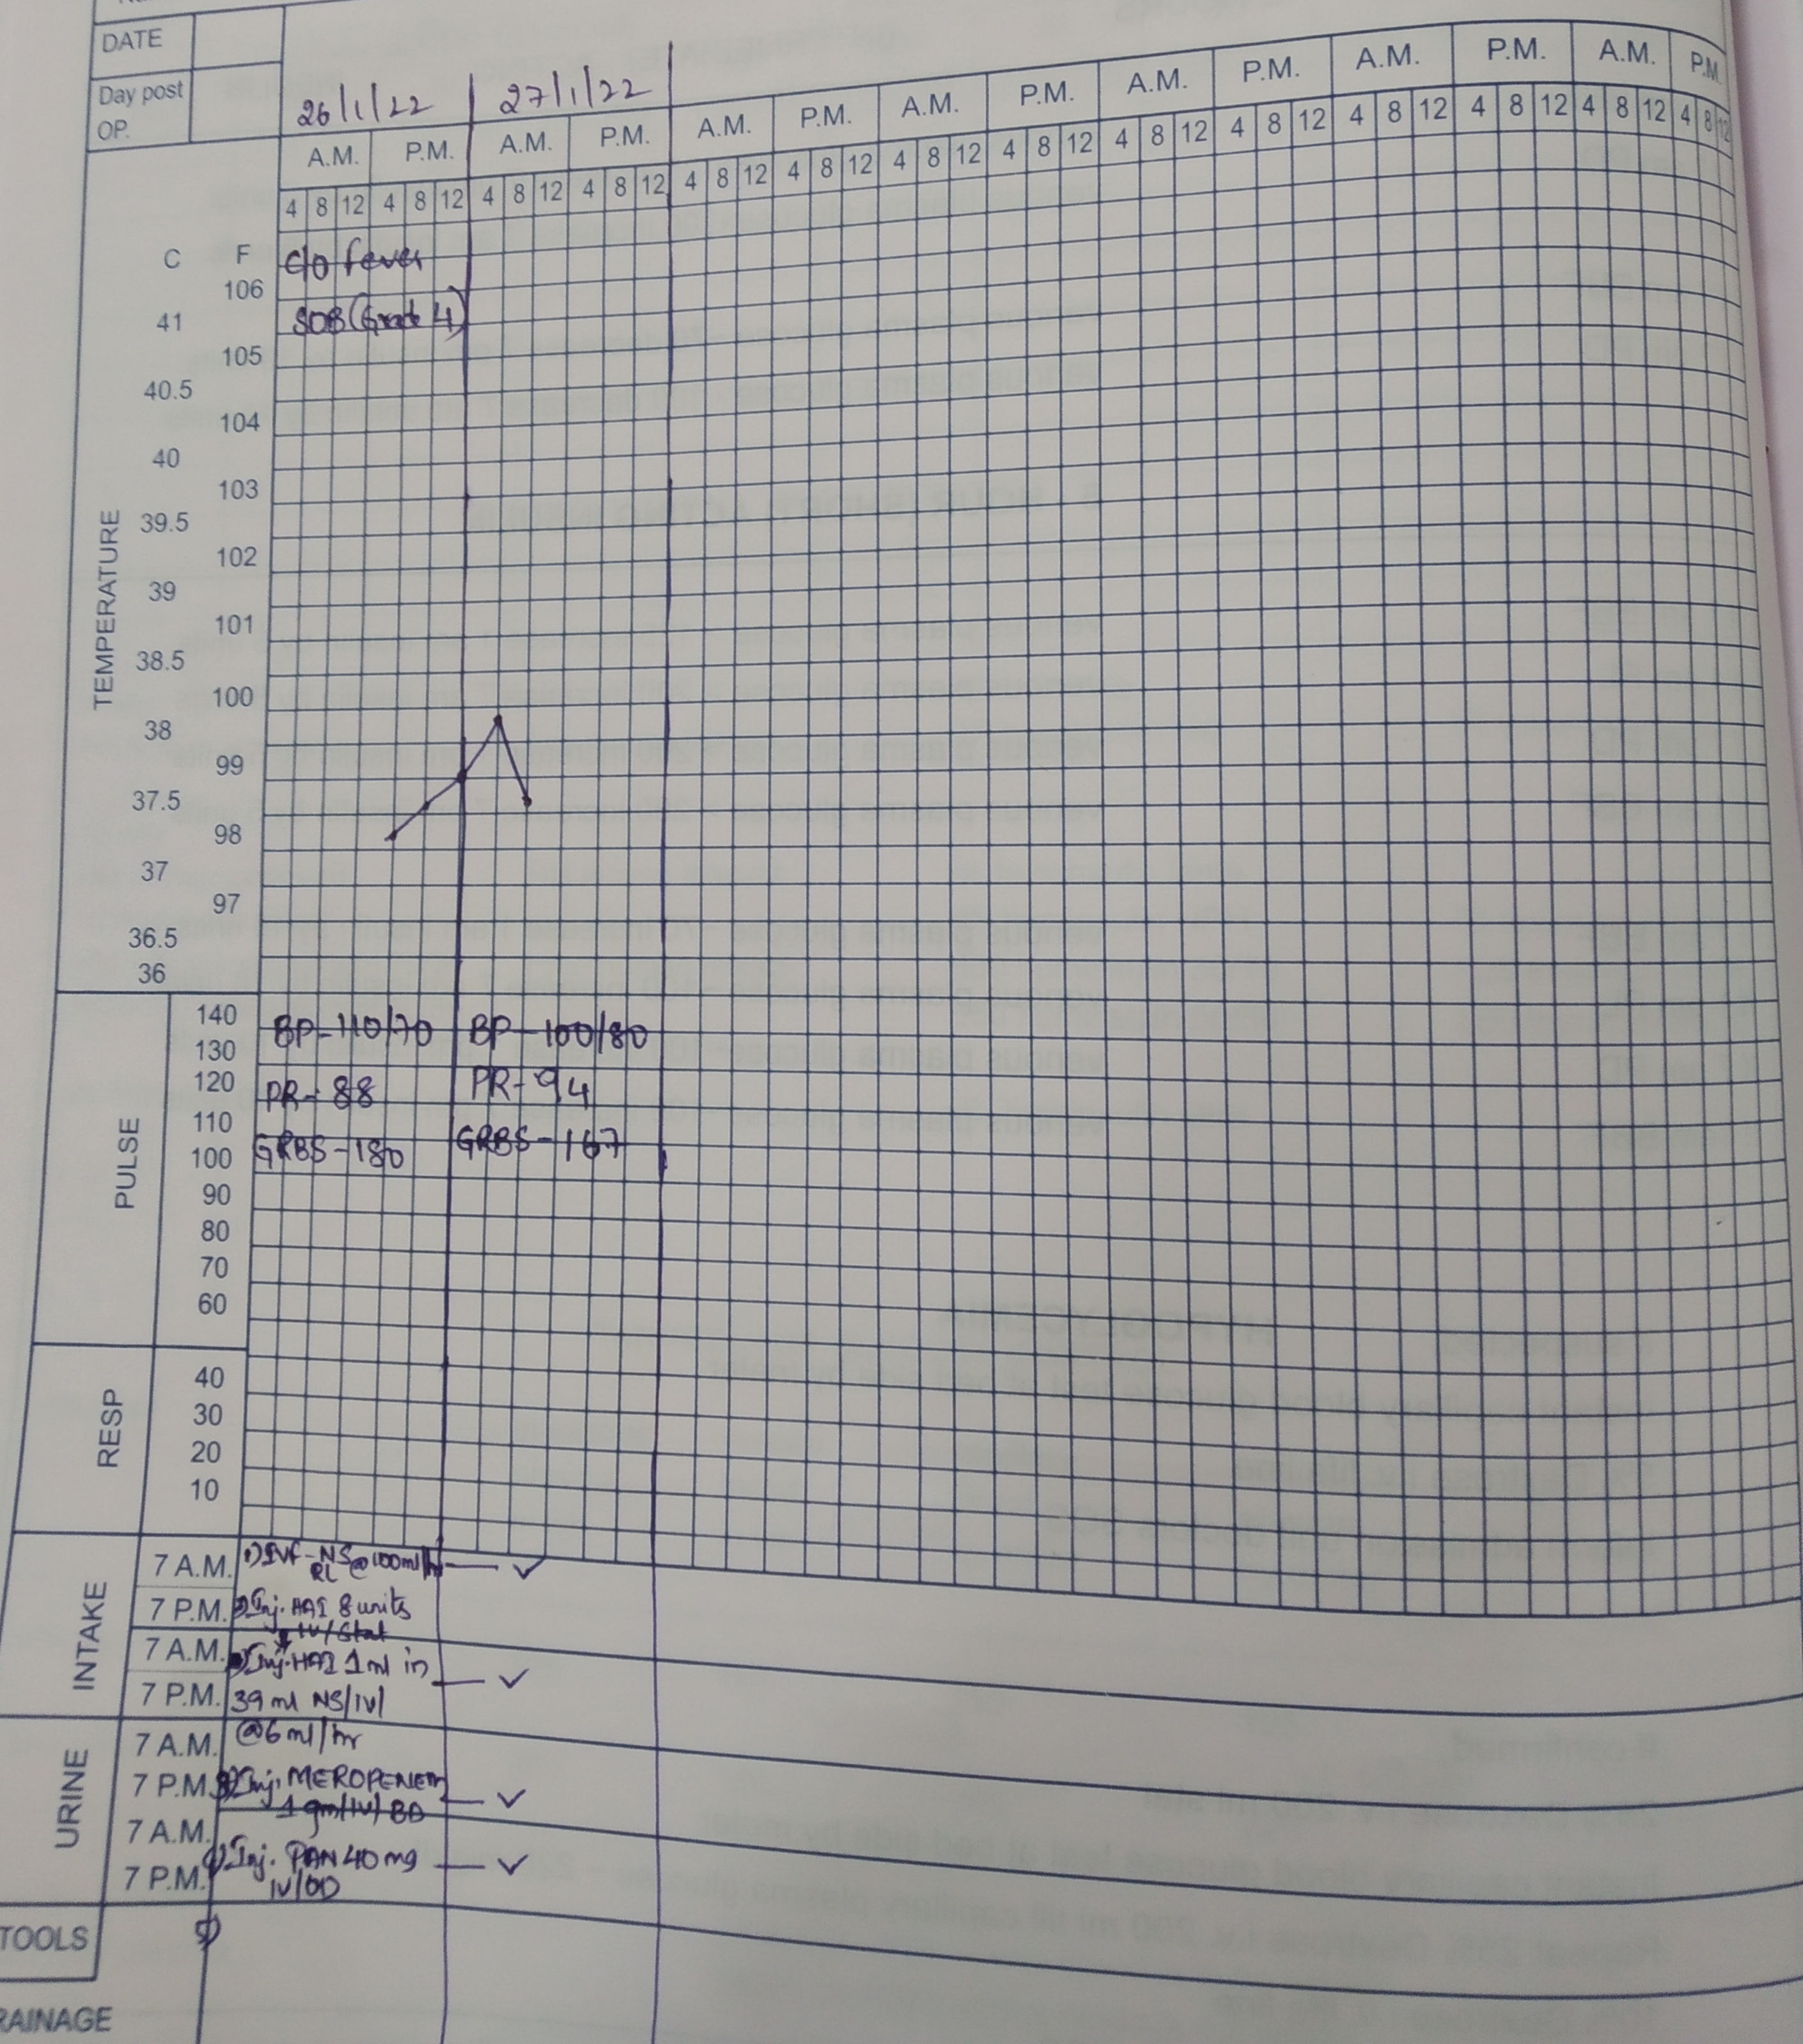 DATE
Day post
OP.
26/1/22 27/1/22
A.M. P.M. A.M. P.M. A.M. P.M. A.M. P.M. A.M. P.M. A.M. P.M. A.M. P.M.
4 8 12 4 8 12 4 8 12 4 8 12 4 8 12 4 8 12 4 8 12 4 8 12 4 8 12 4 8 12 4 8 12 4 8 12 4 8 12 4 8 12
C F
c/o fever
106
41
SOB (Grade 4)
105
40.5
104
40
103
39.5
102
39
101
38.5
100
38
99
37.5
98
37
97
36.5
36
TEMPERATURE
140
BP-110/70 BP-100/80
130
120
PR-88 PR-94
110
100
GRBS-180 GRBS-167
90
80
70
60
PULSE
40
30
20
10
RESP
7 A.M. 1) IVF-NS @100ml/hr ✓
RL
7 P.M. 2) Inj. HAI 8 units
IV/Stat
7 A.M. Inj. HAI 1ml in ✓
7 P.M. 39 ml NS/IV/
INTAKE
7 A.M. @6 ml/hr
7 P.M. 3) Inj. MEROPENEM ✓
1 gm/IV/BD
7 A.M.
7 P.M. 4) Inj. PAN 40 mg ✓
IV/OD
URINE
TOOLS 5)
RAINAGE